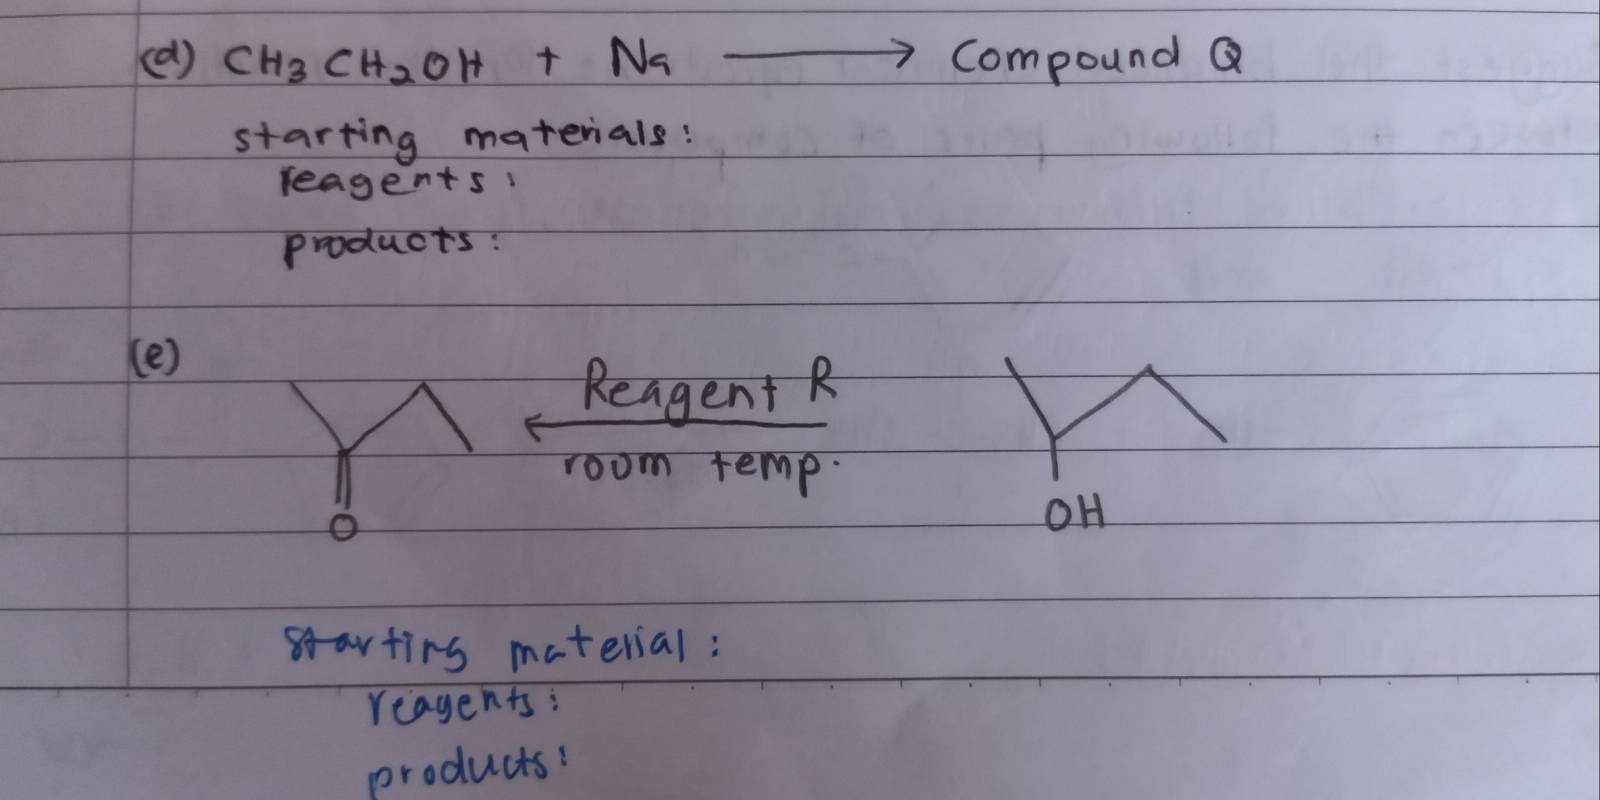 (d) CH3CH2OH + Na ⟶ Compound Q
starting materials:
reagents:
products:
(e)
Reagent R
room temp.
O
OH
starting material:
reagents:
products: